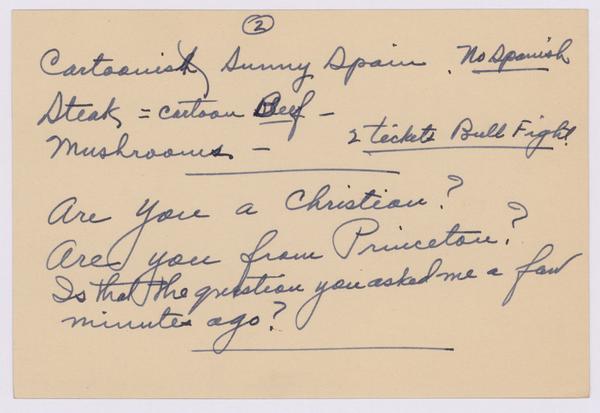 2
Cartoonist Sunny Spain. No Spanish
Steak = cartoon Beef -
Mushrooms - 2 tickets Bull Fight.
Are You a Christian?
Are you from Princeton?
Is that the question you asked me a few
minutes ago?